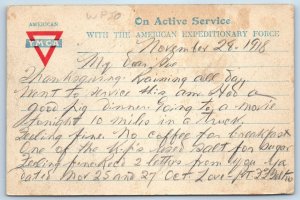 AMERICAN
YMCA
On Active Service
WITH THE AMERICAN EXPEDITIONARY FORCE
November 29-1918
My Dear
Thanksgiving. Raining all Day
Went to service this am. Had a
Good big Dinner. Going to a movie
tonight 10 miles in a truck
Feeling fine. No coffee for breakfast
One of the K.P.s used salt for sugar
2 letters from you
dated Nov 25 and 27 Oct Love